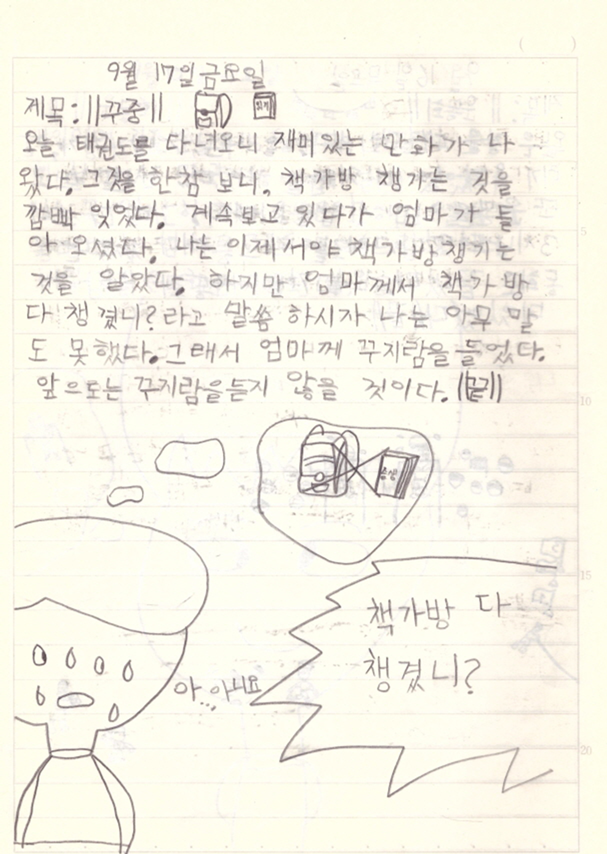 9월 17일 금요일
제목:||꾸중||
오늘 태권도를 다녀오니 재미있는 만화가 나
왔다. 그것을 한참 보니, 책가방 챙기는 것을
깜빡 잊었다. 계속보고 있다가 엄마가 들
아 오셨다. 나는 이제서야 책가방챙기는
것을 알았다. 하지만 엄마께서 책가방
다 챙겼니? 라고 말씀 하시자 나는 아무 말
도 못했다. 그래서 엄마께 꾸지람을 들었다.
앞으도는 꾸지람을듣지 않을 것이다. ||끝||
책가방 다
챙겼니?
아...아니요